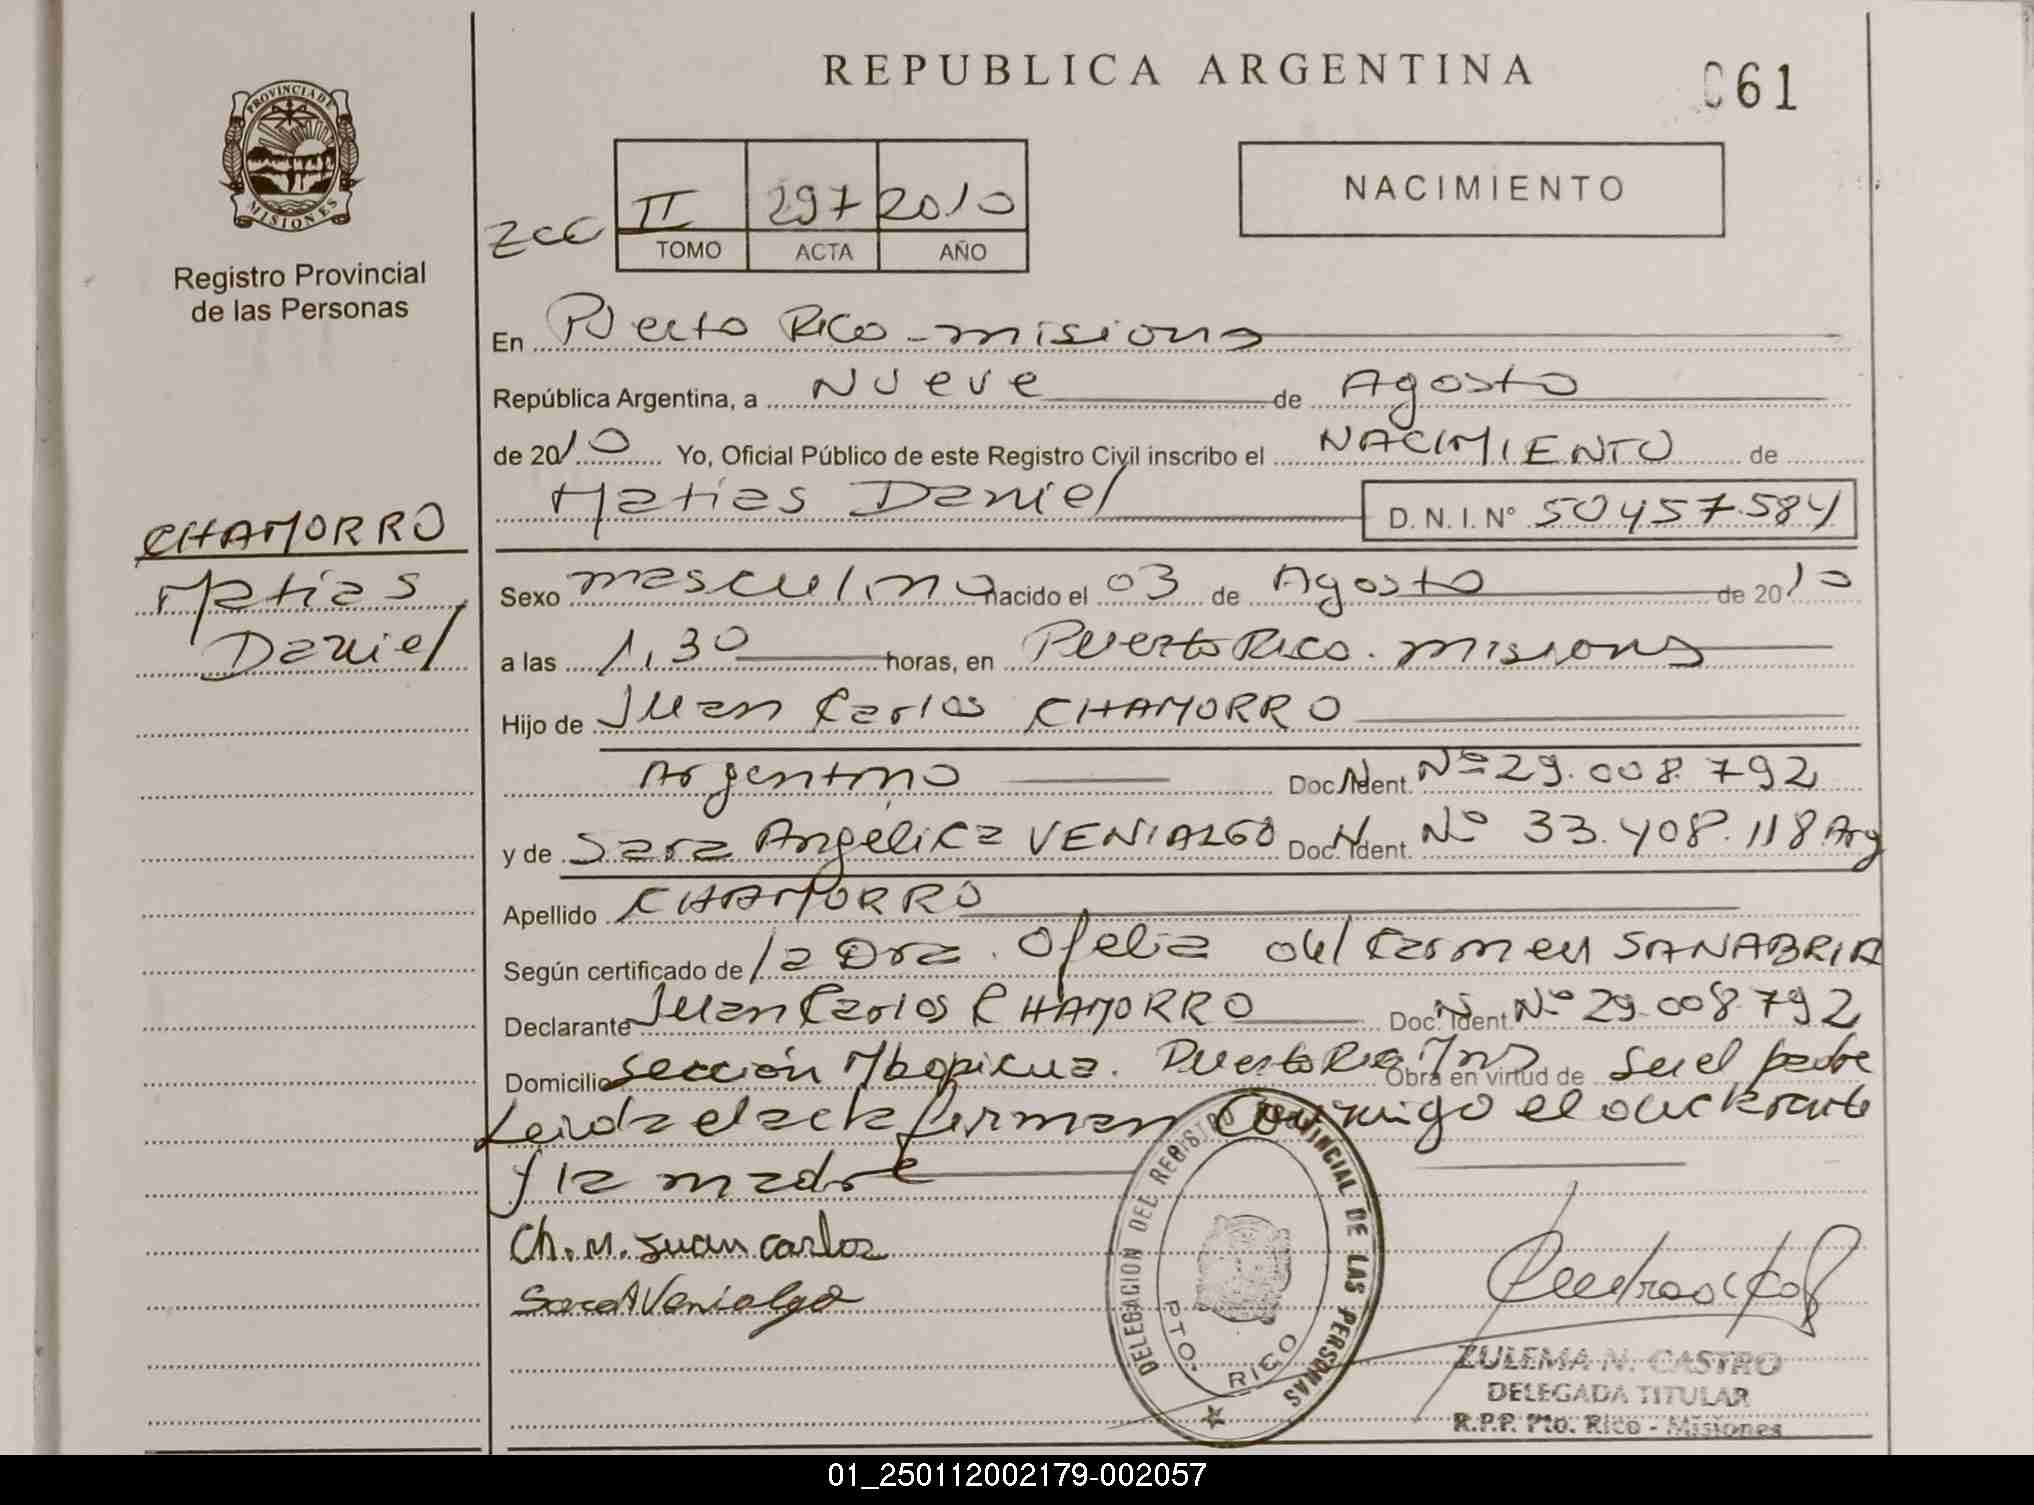 REPUBLICA ARGENTINA
061
PROVINCIA DE MISIONES
Registro Provincial
de las Personas
zcc
II 297 2010
TOMO ACTA AÑO
NACIMIENTO
En Puerto Rico - misiones
República Argentina, a Nueve de Agosto
de 2010 Yo, Oficial Público de este Registro Civil inscribo el NACIMIENTO de
Matias Daniel D. N. I. N° 50457.584
CHAMORRO
Matias
Daniel
Sexo masculino nacido el 03 de Agosto de 2010
a las 1,30 horas, en Puerto Rico. misiones
Hijo de Juan Carlos CHAMORRO
Argentino Doc. Ident. Nº 29.008.792
y de Sara Angélica VENIALGO Doc. Ident. Nº 33.408.118 Arg
Apellido CHAMORRO
Según certificado de la Dra. Ofelia del Carmen SANABRIA
Declarante Juan Carlos CHAMORRO Doc. Ident. Nº 29.008.792
Domicilio sección Mbopicua. Puerto Rico Mns Obra en virtud de ser el padre
Leida el acta firman conmigo el declarante
y la madre
Ch. M. Juan Carlos
Sara A Venialgo
DELEGACION DEL REGISTRO PROVINCIAL DE LAS PERSONAS
PTO. RICO
ZULEMA N. CASTRO
DELEGADA TITULAR
R.P.P. Pto. Rico - Misiones
01_250112002179-002057